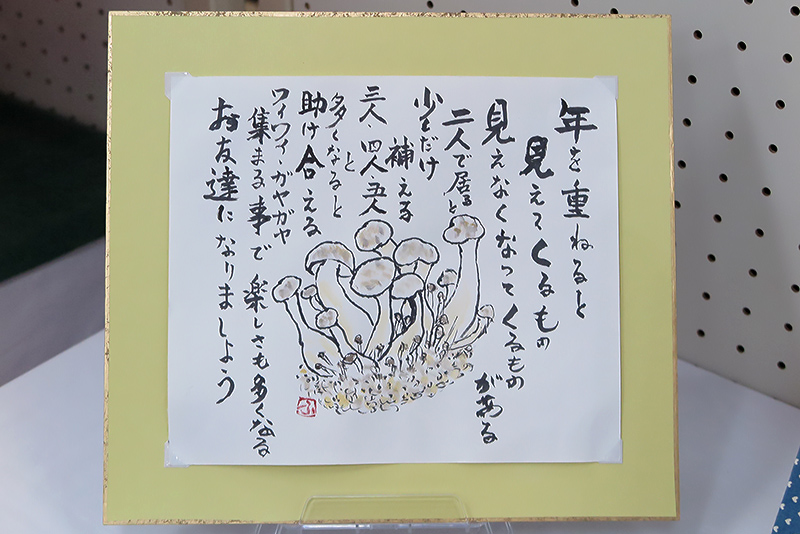 年を重ねると
見えてくるもの
見えなくなってくるもの
がある
二人で居ると
少しだけ
補える
三人・四人・五人
と
多くなると
助け合える
ワイワイ・ガヤガヤ
集まる事で楽しさも多くなる
お友達になりましょう